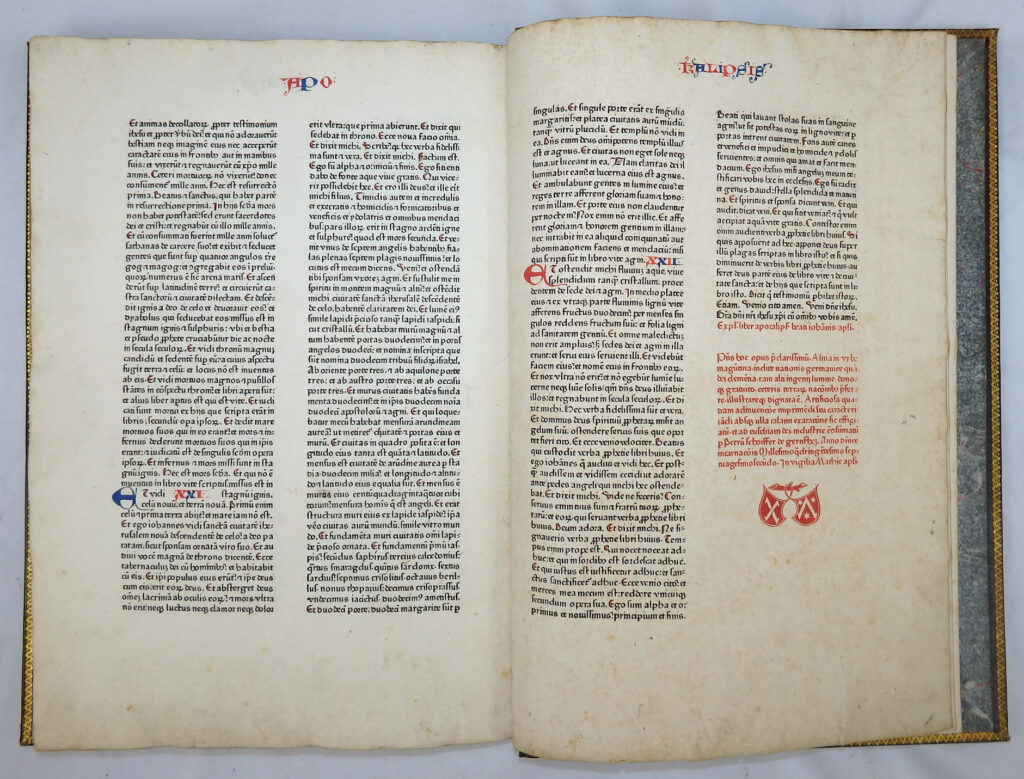 APO
Et animas decollatoꝝ ꝓpter testimonium
ihesu et ꝓpter v̄bū dei: et qui nō adorauerūt
bestiam neqꝫ imaginē eius nec acceperūt
caracdarē eius in frontibꝰ aut in manibus
suis: et vixerūt ⁊ regnauerūt cū xp̄o mille
annis. Ceteri mortuoꝝ nō vixerūt: donec
consūment̄ mille anni. Hec est resurrectō
prima. Beatus ⁊ sanctus, qui habet partē
in resurrectione prima. In hijs scd̄a mors
non habet potestatē: sed erunt sacerdotes
dei et cristi: et regnabūt cū illo mille annis.
Et cū consummati fuerint mille anni: soluet̄
sathanas de carcere suo: et exibit ⁊ seducet
gentes que sunt sup quatuor angulos tre
gog ⁊ magog: et ↄgregabit eos ī preliū:
quoꝝ numerus ē sic arena maris. Et ascen
derūt sup latitudinē terre: et circuierūt ca
stra sanctoꝝ ⁊ ciuitatē dilectam. Et descē
dit ignis a deo de celo et deuorauit eos: et
dyabolus qui seducebat eos missus est in
stagnum ignis ⁊ sulphuris: vbi et bestia
et pseudo ꝓphete cruciabūtur die ac nocte
in secula seculoꝝ. Et vidi thronū magnū
candidū et sedentē sup eū: a cuius aspectu
fugit terra ⁊ celū: et locus nō est inuentus
ab eis. Et vidi mortuos magnos ⁊ pusillos
stātes in cōspectu throni: et libri aperti sūt:
et alius liber aptus est qui est vite. Et iudi
cati sunt mortui ex hijs que scripta erāt in
libris: secundū opa ipsoꝝ. Et dedit mare
mortuos suos qui in eo erant: et mors ⁊ in
fernus dederunt mortuos suos qui in ip̄is
erant: ⁊ iudicatū est de singulis scd̄m opera
ipsoꝝ. Et infernus et mors missi sunt in sta
gnū ignis. Hec est mors scd̄a. Et qui nō ē
inuentus in libro vite scriptus: missus est in
ET vidi XXI stagnū ignis.
celū nouū: et terrā nouā. Primū enim
celū ⁊ prima terra abijt: et mare iam nō est.
Et ego iohannes vidi sanctā ciuitatē ihe
rusalem nouā descendentē de celo: a deo pa
ratam: sicut sponsam ornatā viro suo. Et au
diui vocē magnā de throno dicentē. Ecce
tabernaculū dei cū hominibꝰ: et habitabit
cū eis. Et ip̄i populus eius erūt: ⁊ ip̄e deus
cum eis: erit eoꝝ deus. Et absterget deus
omnē lacrimā ab oculis eoꝝ: ⁊ mors vltra
nō erit: neqꝫ luctus neqꝫ clamor neqꝫ dolor
erit vltra: que prima abierunt. Et dixit qui
sedebat in throno. Ecce noua facio om̄ia.
Et dixit michi. Scribe: qꝛ hec verba fidelissi
ma sunt ⁊ vera. Et dixit michi. Factum est.
Ego sū alpha ⁊ o: iniciū ⁊ finis. Ego sitienti
dabo de fonte aque viue gratis. Qui vice
rit possidebit hec. Et ero illi deus: et ille erit
michi filius. Timidis autem et incredulis
et execratis ⁊ homicidis ⁊ fornicatoribus et
veneficis et ydolatris et omnibus mendaci
bus: pars illoꝝ erit in stagno ardēti igne
et sulphure: quod est mors secunda. Et ve
nit vnus de septem angelis habentibꝰ fia
las plenas septem plagis nouissimis: et lo
cutus est mecum dicens. Veni: et ostendā
tibi sponsam vxorē agni. Et sustulit me in
spiritu in montem magnū ⁊ altū: et ostēdit
michi ciuitatē sanctā iherusalē descēdentē
de celo: habentē claritatem dei. Et lumē eiꝰ
simile lapidi p̄cioso tanqꝫ lapidi iaspidi: si
cut cristallū. Et habebat murū magnū ⁊ al
tum habentē portas duodecim: et in portis
angelos duodecī: et nomina īscripta que
sūt nomina duodecim tribuū filioꝝ israhel.
Ab oriente porte tres: ⁊ ab aquilone porte
tres: et ab austro porte tres: et ab occasu
porte tres. Et murus ciuitatis habēs funda
menta duodecim: et in ip̄is duodecim noīa
duodecī apostoloꝝ ⁊ agni. Et qui loque
batur mecū habebat mensurā arundineam
aureā: ut metiret̄ ciuitatē ⁊ portas eius et
murū. Et ciuitas in quadro posita ē: et lon
gitudo eius tanta est quāta ⁊ latitudo. Et
mensus est ciuitatē de arūdine aurea p sta
dia duodecim milia: et longitudo ⁊ latitu
do ⁊ altitudo eius equalia sūt. Et mensus ē
muros eius centūquadragintaqttuor cubi
torum: mensura hoīs que est angeli. Et erat
structura muri eius ex lapide iaspide: ip̄a
vēo ciuitas aurū mundū: simile vitro mun
do. Et fundamēta muri ciuitatis om̄i lapi
de p̄cioso ornata. Et fundamentū p̄mū ias
pis: secūdus saphirus: tercius calcedonius:
quartus smaragdus: quintus sardonix: sextus
sardius: septimus crisolitus: octauus beril
lus: nonus thopazius: decimus crisoprassus:
vndecimus iacinctus: duodecimꝰ ametistus.
Et duodecī porte: duodecī margarite sūt p
KALIPSIS
singulas. Et singule porte erāt ex singulis
margaritis: et platea ciuitatis aurū mūdū:
tanqꝫ vitrū plucidū. Et templū nō vidi in
ea. Dn̄s enim deus omnipotens templū illiꝰ
est et agnus. Et ciuitas non eget sole neqꝫ
luna: ut luceant in ea. Nam claritas dei il
luminabit eam: et lucerna eius est agnus.
Et ambulabunt gentes in lumine eius: et
reges terre afferent gloriam suam ⁊ hono
rem in illam. Et porte eius non claudentur
per noctē: Nox enim nō erit illic. Et affe
rent gloriam ⁊ honorem gentium in illam:
nec intrabit in ea aliquid coinquinatū aut
abominationem faciens et mendaciū: nisi
qui scripti sūt in libro vite agni. XXII
ET ostendit michi fluuiū aque viue
splendidum tanqꝫ cristallum: proce
dentem de sede dei ⁊ agni. In medio platee
eius ⁊ ex vtraqꝫ parte fluminis lignū vite
afferens fructus duodecī: per menses sin
gulos reddens fructum suū: et folia ligni
ad sanitatem gentiū. Et omne maledictū
non erit amplius: sed sedes dei et agni in illa
erunt: et serui eius seruient illi. Et videbūt
faciem eius: et nomē eius in frontibꝰ eoꝝ.
Et nox vltra nō erit: et nō egebūt lumine lu
cerne neqꝫ lumīe solis: qm̄ dn̄s deus illuīabit
illos: et regnabunt in secula seculoꝝ. Et di
xit michi. Hec verba fidelissima sūt et vera.
Et dominus deus spirituū ꝓphetaꝝ misit an
gelum suū: ostendere seruis suis que opor
tet fieri cito. Et ecce venio velociter. Beatus
qui custodit verba ꝓphetie libri huius. Et
ego iohannes qui audiui et vidi hec. Et post
qꝫ audissem et vidissem cecidi ut adorarem
ante pedes angeli qui michi hec ostende
bat. Et dixit michi. Vide ne feceris: Con
seruus enim tuus sum ⁊ fratrū tuoꝝ ꝓphe
taꝝ: et eoꝝ qui seruant verba ꝓphetie libri
huius. Deum adora. Et dixit michi. Ne si
gnaueris verba ꝓphetie libri huius. Tem
pus enim prope est. Qui nocet noceat ad
huc: et qui in sordibꝰ est sordescat adhuc.
Et qui iustus est iustificetur adhuc: et san
ctus sanctificet̄ adhuc. Ecce venio cito: et
merces mea mecum est: reddere vnicuiqꝫ
secundum opera sua. Ego sum alpha et o:
primus et nouissimus: principium et finis.
Beati qui lauant stolas suas in sanguine
agni: ut sit potestas eoꝝ in ligno vite: et p
portas intrent ciuitatem. Foris autē canes
et venefici et impudici et homicide ⁊ ydolis
seruientes: et omnis qui amat et facit men
dacium. Ego ihesus misi angelum meum te
stificari vobis hec in ecclesijs. Ego sū radix
et genus dauid: stella splendida et matuti
na. Et spiritus et sponsa dicunt veni. Et qui
audit: dicat veni. Et qui sitit veniat: ⁊ q vult
accipiat aquā vite gratis. Contestor enim
omni audienti verba ꝓphetie libri huius. Si
quis apposuerit ad hec: apponet deus super
illū plagas scriptas in libro isto: et si quis
diminuerit de verbis libri ꝓphetie huius: au
feret deus partē eius de libro vite: ⁊ de ciui
tate sancta: et de hijs que scripta sunt in li
bro isto. Dicit qui testimoniū phibet istoꝝ.
Etiam. Venio cito amen. Veni dn̄e ihesu.
Gr̄a dn̄i nr̄i ihesu xp̄i cū om̄ibꝰ vobis amē.
Expl̓ liber apocalipsꝭ beati iohānis apl̓i.
Pn̄s hoc opus p̄clarissimū. Alma in vrbe
maguntina inclite nationis germanice quā
dei clemētia tam alti ingenij lumine dono
qꝫ gratuito: ceteris terraꝝ nacōnibꝰ pfer
re: illustrareqꝫ dignata ē. Artificiosa qua
dam adinuencōe imprimēdi seu caracteri
zādi absqꝫ ulla calami exaracōne sic effigi
atū: et ad eusebiam dei industrie ē ↄsūmatū
p Petrū schoiffer de gernsheꝫ. Anno dn̄ice
incarnacōis Millesimo qudringētesimo sep
tuagesimosecūdo. In vigilia Mathie apl̓i.